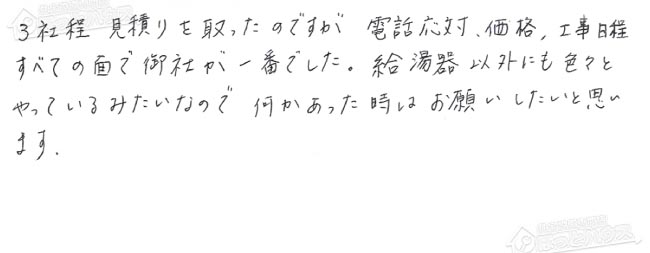 3社程 見積りを取ったのですが 電話応対、価格、工事日程
すべての面で御社が一番でした。給湯器以外にも色々と
やっているみたいなので 何かあった時はお願いしたいと思い
ます。